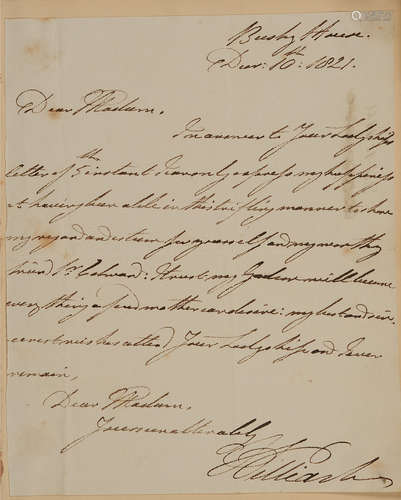 Bushy House.
Decr: 10th: 1821.
Dear Madam,
In answer to Your Ladyships
letter of 5th instant I can only express my happiness
at having been able in this trifling manner to shew
my regard and esteem for yourself and my worthy
friend Sr. Edward: I trust my Godson will become
every thing a fond mother can desire: my best and sin-
cerest wishes attend Your Ladyship and I ever
remain,
Dear Madam,
Yours unalterably
William